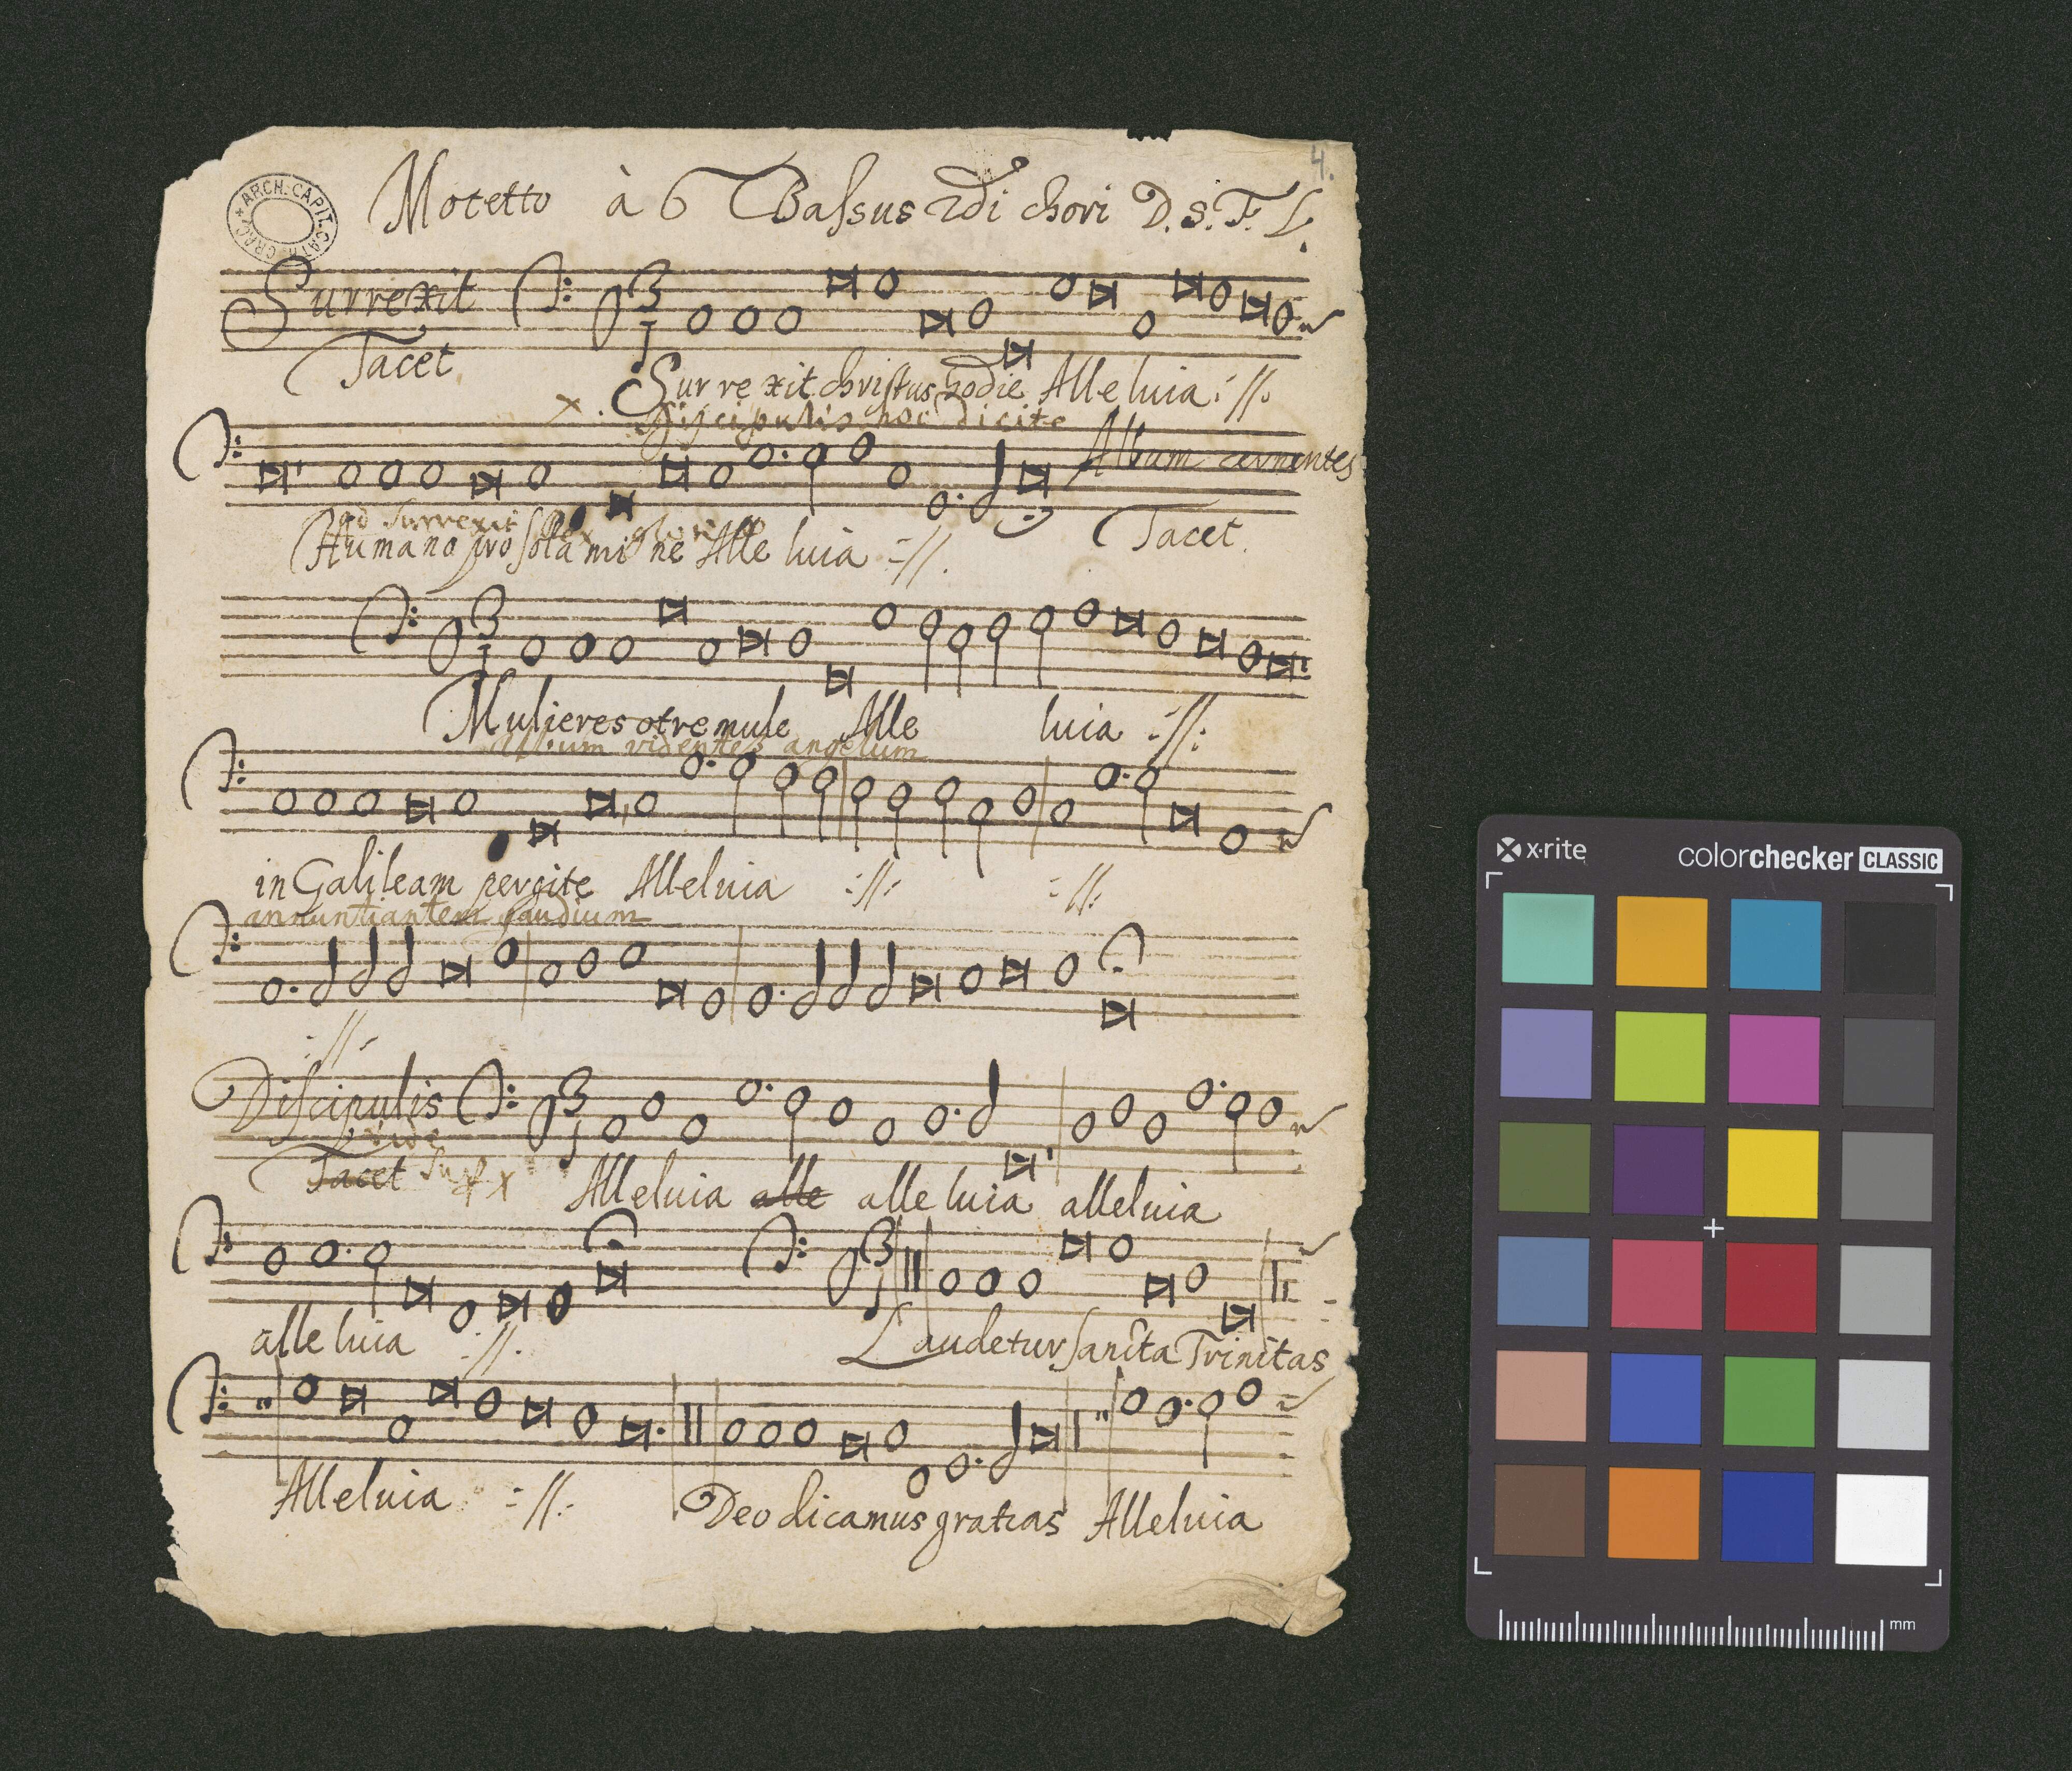 4.
ARCH. CAPIT. CATH. CRAC.
Motetto à 6 Bassus 2di chori D. S. F. L.
Surrexit
3
1
Tacet
Surrexit christus hodie Alleluia ://:
x. Discipulis hoc dicite
Album cernentes
quod surrexit rex gloriae
Humano pro solamine Alle luia ://. Tacet.
3
1
Mulieres o tremule Alle luia ://:
Album videntes angelum
in Galileam pergite Alleluia ://: ://:
annuntiantem gaudium
://:
Discipulis
3
1
Tacet
Alleluia alle alle luia alleluia
3
1
alle luia ://. Laudetur sancta Trinitas
Alleluia ://: Deo dicamus gratias Alleluia
x·rite colorchecker CLASSIC
mm